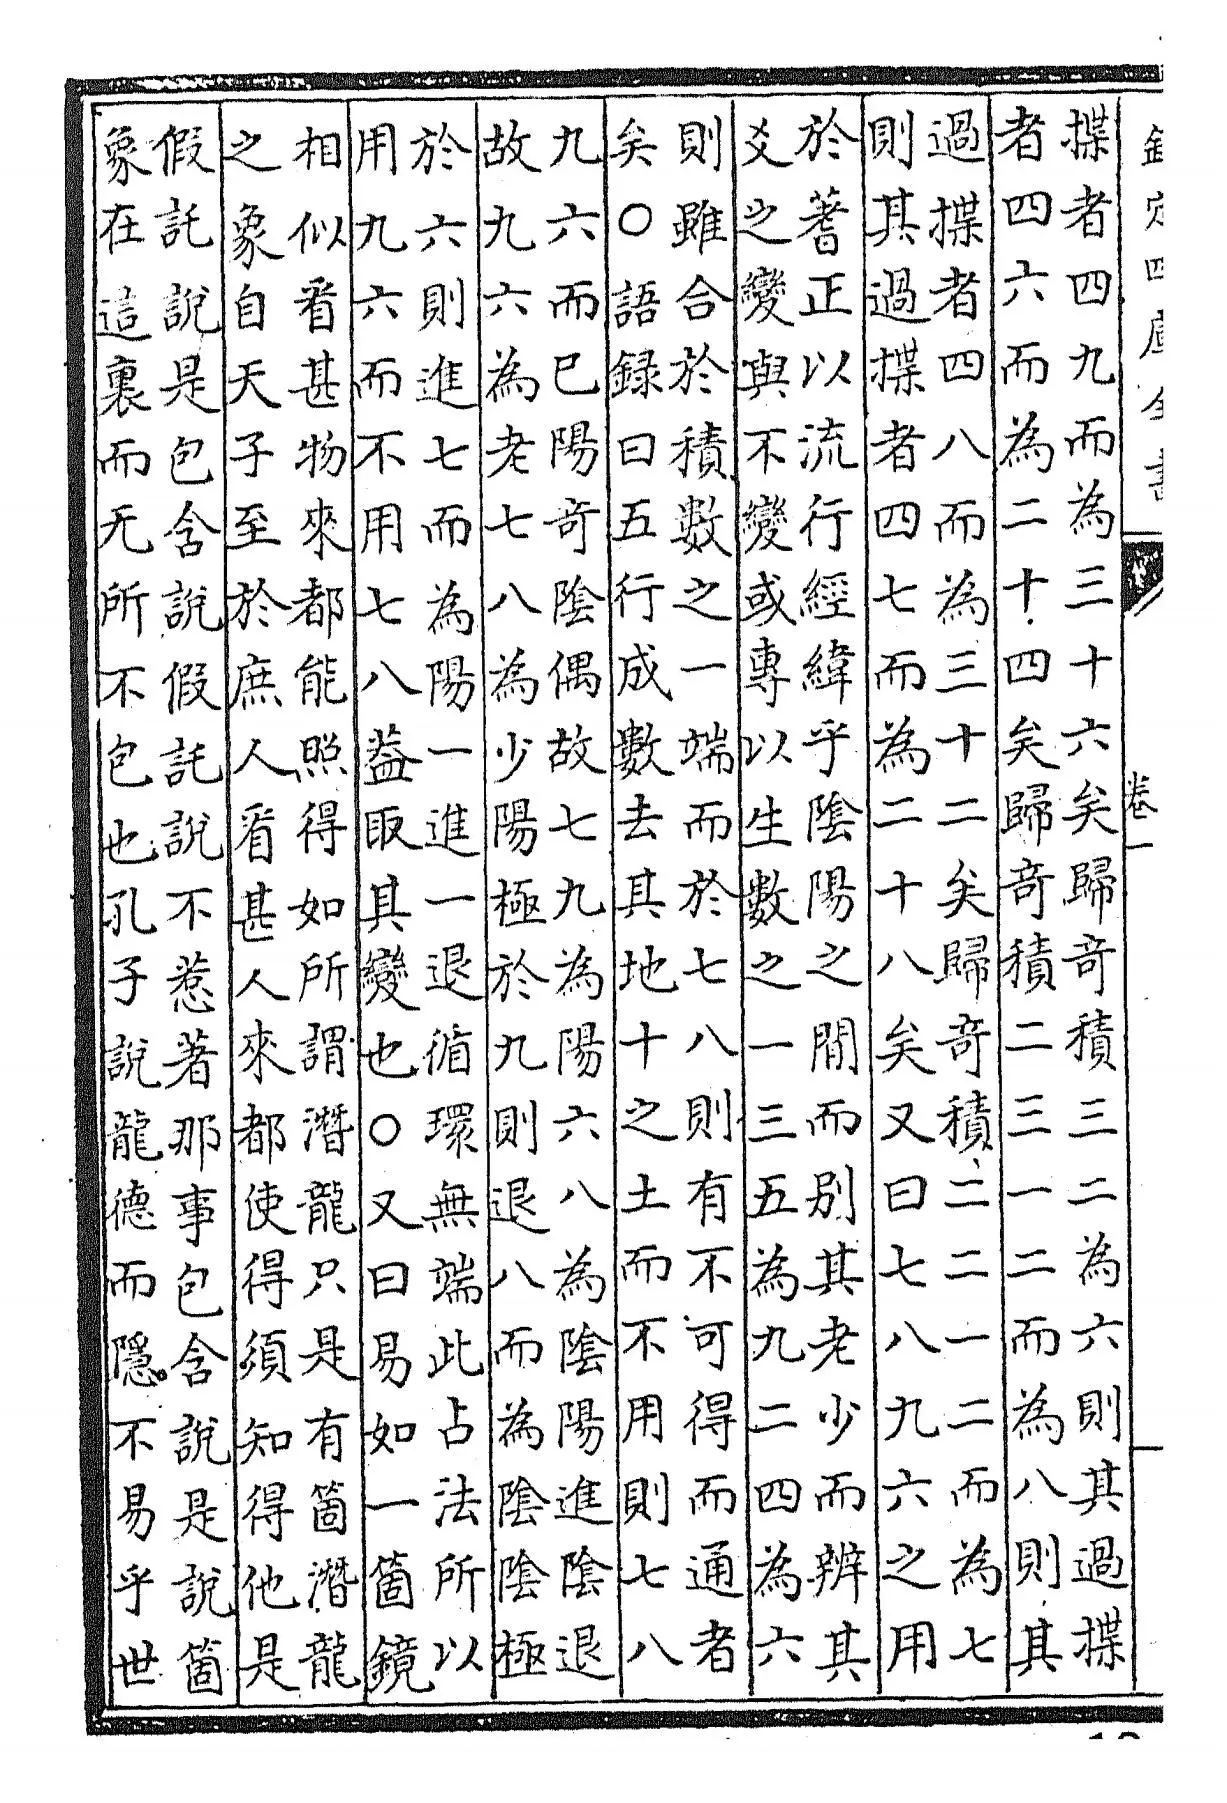 欽定四庫全書
卷一
揲者四九而為三十六矣歸奇積三二為六則其過揲
者四六而為二十四矣歸奇積二三一二而為八則其
過揲者四八而為三十二矣歸奇積二二一二而為七
則其過揲者四七而為二十八矣又曰七八九六之用
於蓍正以流行經緯乎陰陽之間而别其老少而辨其
爻之變與不變或專以生數之一三五為九二四為六
則雖合於積數之一端而於七八則有不可得而通者
矣○語録曰五行成數去其地十之土而不用則七八
九六而已陽奇陰偶故七九為陽六八為陰陽進陰退
故九六為老七八為少陽極於九則退八而為陰陰極
於六則進七而為陽一進一退循環無端此占法所以
用九六而不用七八葢取其變也○又曰易如一箇鏡
相似看甚物來都能照得如所謂潛龍只是有箇潛龍
之象自天子至於庶人看甚人來都使得須知得他是
假託説是包含説假託説不惹著那事包含説是説箇
象在這裏而无所不包也孔子説龍德而隱不易乎世